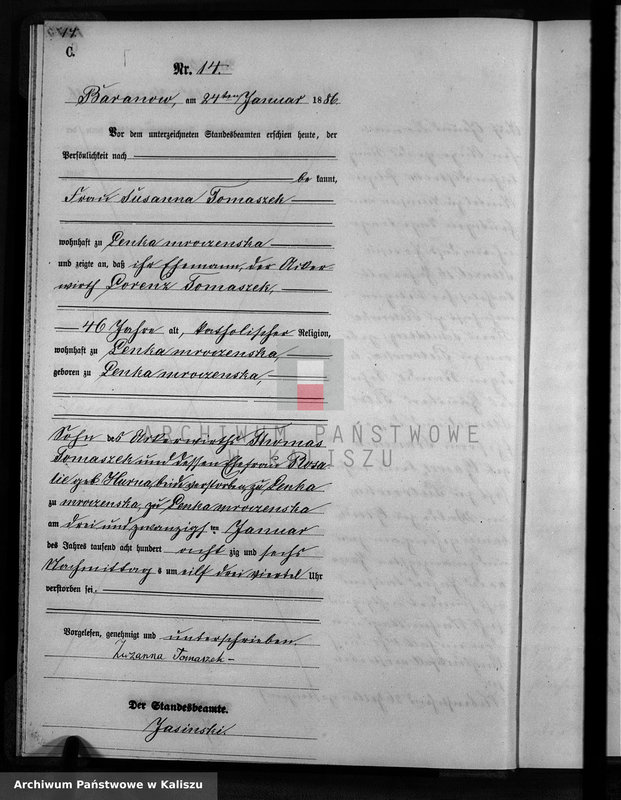 C.
Nr. 14.
Baranow, am 24ten Januar 1886
Vor dem unterzeichneten Standesbeamten erschien heute, der
Persönlichkeit nach
be kannt,
Frau Susanna Tomaszek
wohnhaft zu Lenka mroczenska
und zeigte an, daß ihr Ehemann, der Acker
wirth Lorenz Tomaszek,
46 Jahre alt, katholischer Religion,
wohnhaft zu Lenka mroczenska
geboren zu Lenka mroczenska,
ARCHIWUM PAŃSTWOWE
W KALISZU
Sohn des Ackerwirths Thomas
Tomaszek und dessen Ehefrau Rosa-
lie geb. beide verstorben zu Lenka
zu mroczenska, zu Lenka mroczenska
am drei und zwanzigsten Januar
des Jahres tausend acht hundert acht zig und sechs
Nachmittag s um eilf drei viertel Uhr
verstorben sei.
Vorgelesen, genehmigt und unterschrieben
Zuzanna Tomaszek
Der Standesbeamte.
Jasinski
Archiwum Państwowe w Kaliszu